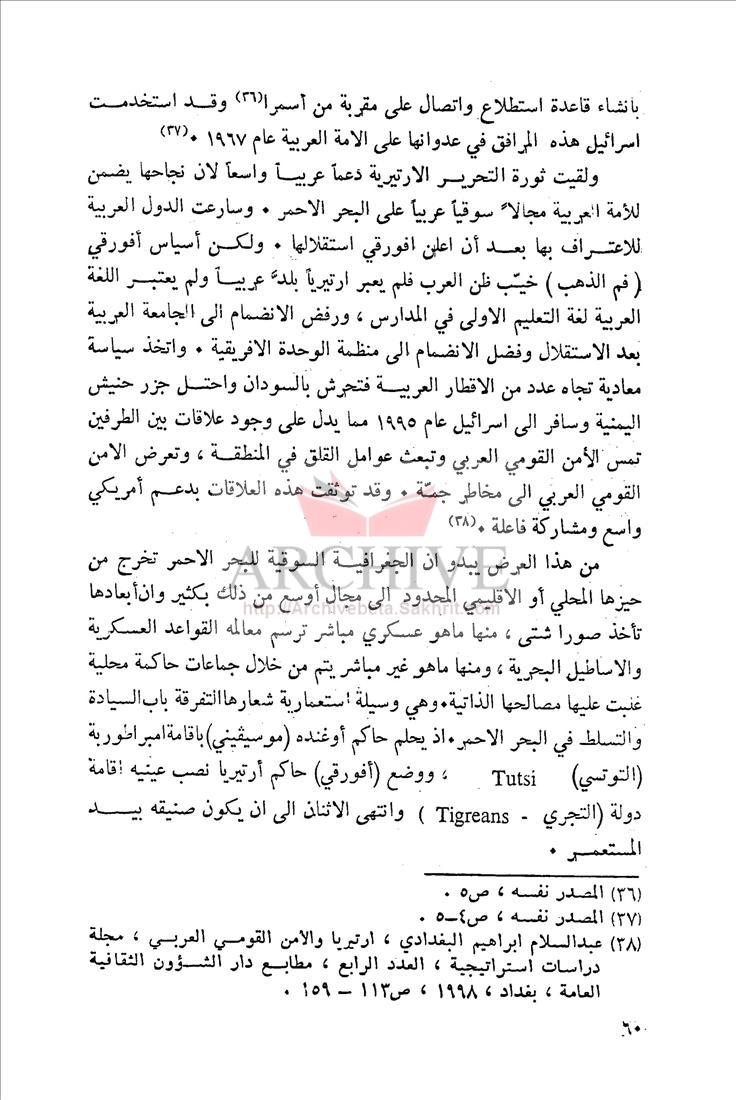 بانشاء قاعدة استطلاع واتصال على مقربة من أسمرا(٣٦) وقد استخدمت
اسرائيل هذه المرافق في عدوانها على الامة العربية عام ١٩٦٧ .(٣٧)
ولقيت ثورة التحرير الارتيرية دعماً عربياً واسعاً لان نجاحها يضمن
للأمة العربية مجالاً سوقياً عربياً على البحر الاحمر . وسارعت الدول العربية
للاعتراف بها بعد أن اعلن افورقي استقلالها . ولكن أسياس أفورقي
( فم الذهب ) خيّب ظن العرب فلم يعبر ارتيرياً بلداً عربياً ولم يعتبر اللغة
العربية لغة التعليم الاولى في المدارس ، ورفض الانضمام الى الجامعة العربية
بعد الاستقلال وفضل الانضمام الى منظمة الوحدة الافريقية . واتخذ سياسة
معادية تجاه عدد من الاقطار العربية فتحرش بالسودان واحتل جزر حنيش
اليمنية وسافر الى اسرائيل عام ١٩٩٥ مما يدل على وجود علاقات بين الطرفين
تمس الأمن القومي العربي وتبعث عوامل القلق في المنطقة ، وتعرض الامن
القومي العربي الى مخاطر جمّة . وقد توثقت هذه العلاقات بدعم أمريكي
واسع ومشاركة فاعلة .(٣٨)
من هذا العرض يبدو ان الجغرافية السوقية للبحر الاحمر تخرج من
حيزها المحلي أو الاقليمي المحدود الى مجال أوسع من ذلك بكثير وان أبعادها
تأخذ صورا شتى ، منها ماهو عسكري مباشر ترسم معالمه القواعد العسكرية
والاساطيل البحرية ، ومنها ماهو غير مباشر يتم من خلال جماعات حاكمة محلية
غلبت عليها مصالحها الذاتية.وهي وسيلة استعمارية شعارها التفرقة باب السيادة
والتسلط في البحر الاحمر.اذ يحلم حاكم أوغنده (موسيڤيني) باقامة امبراطورية
(التوتسي) Tutsi ، ووضع (أفورقي) حاكم أرتيريا نصب عينيه اقامة
دولة (التجري - Tigreans ) وانتهى الاثنان الى ان يكون صنيقه بيد
المستعمر .
(٣٦) المصدر نفسه ، ص٥ .
(٣٧) المصدر نفسه ، ص٤–٥ .
(٣٨) عبدالسلام ابراهيم البغدادي ، ارتيريا والأمن القومي العربي ، مجلة
دراسات استراتيجية ، العدد الرابع ، مطابع دار الشؤون الثقافية
العامة ، بغداد ، ١٩٩٨ ، ص١١٣ – ١٥٩ .
٦٠
ARCHIVE
http://Archivebeta.Sakhrit.com